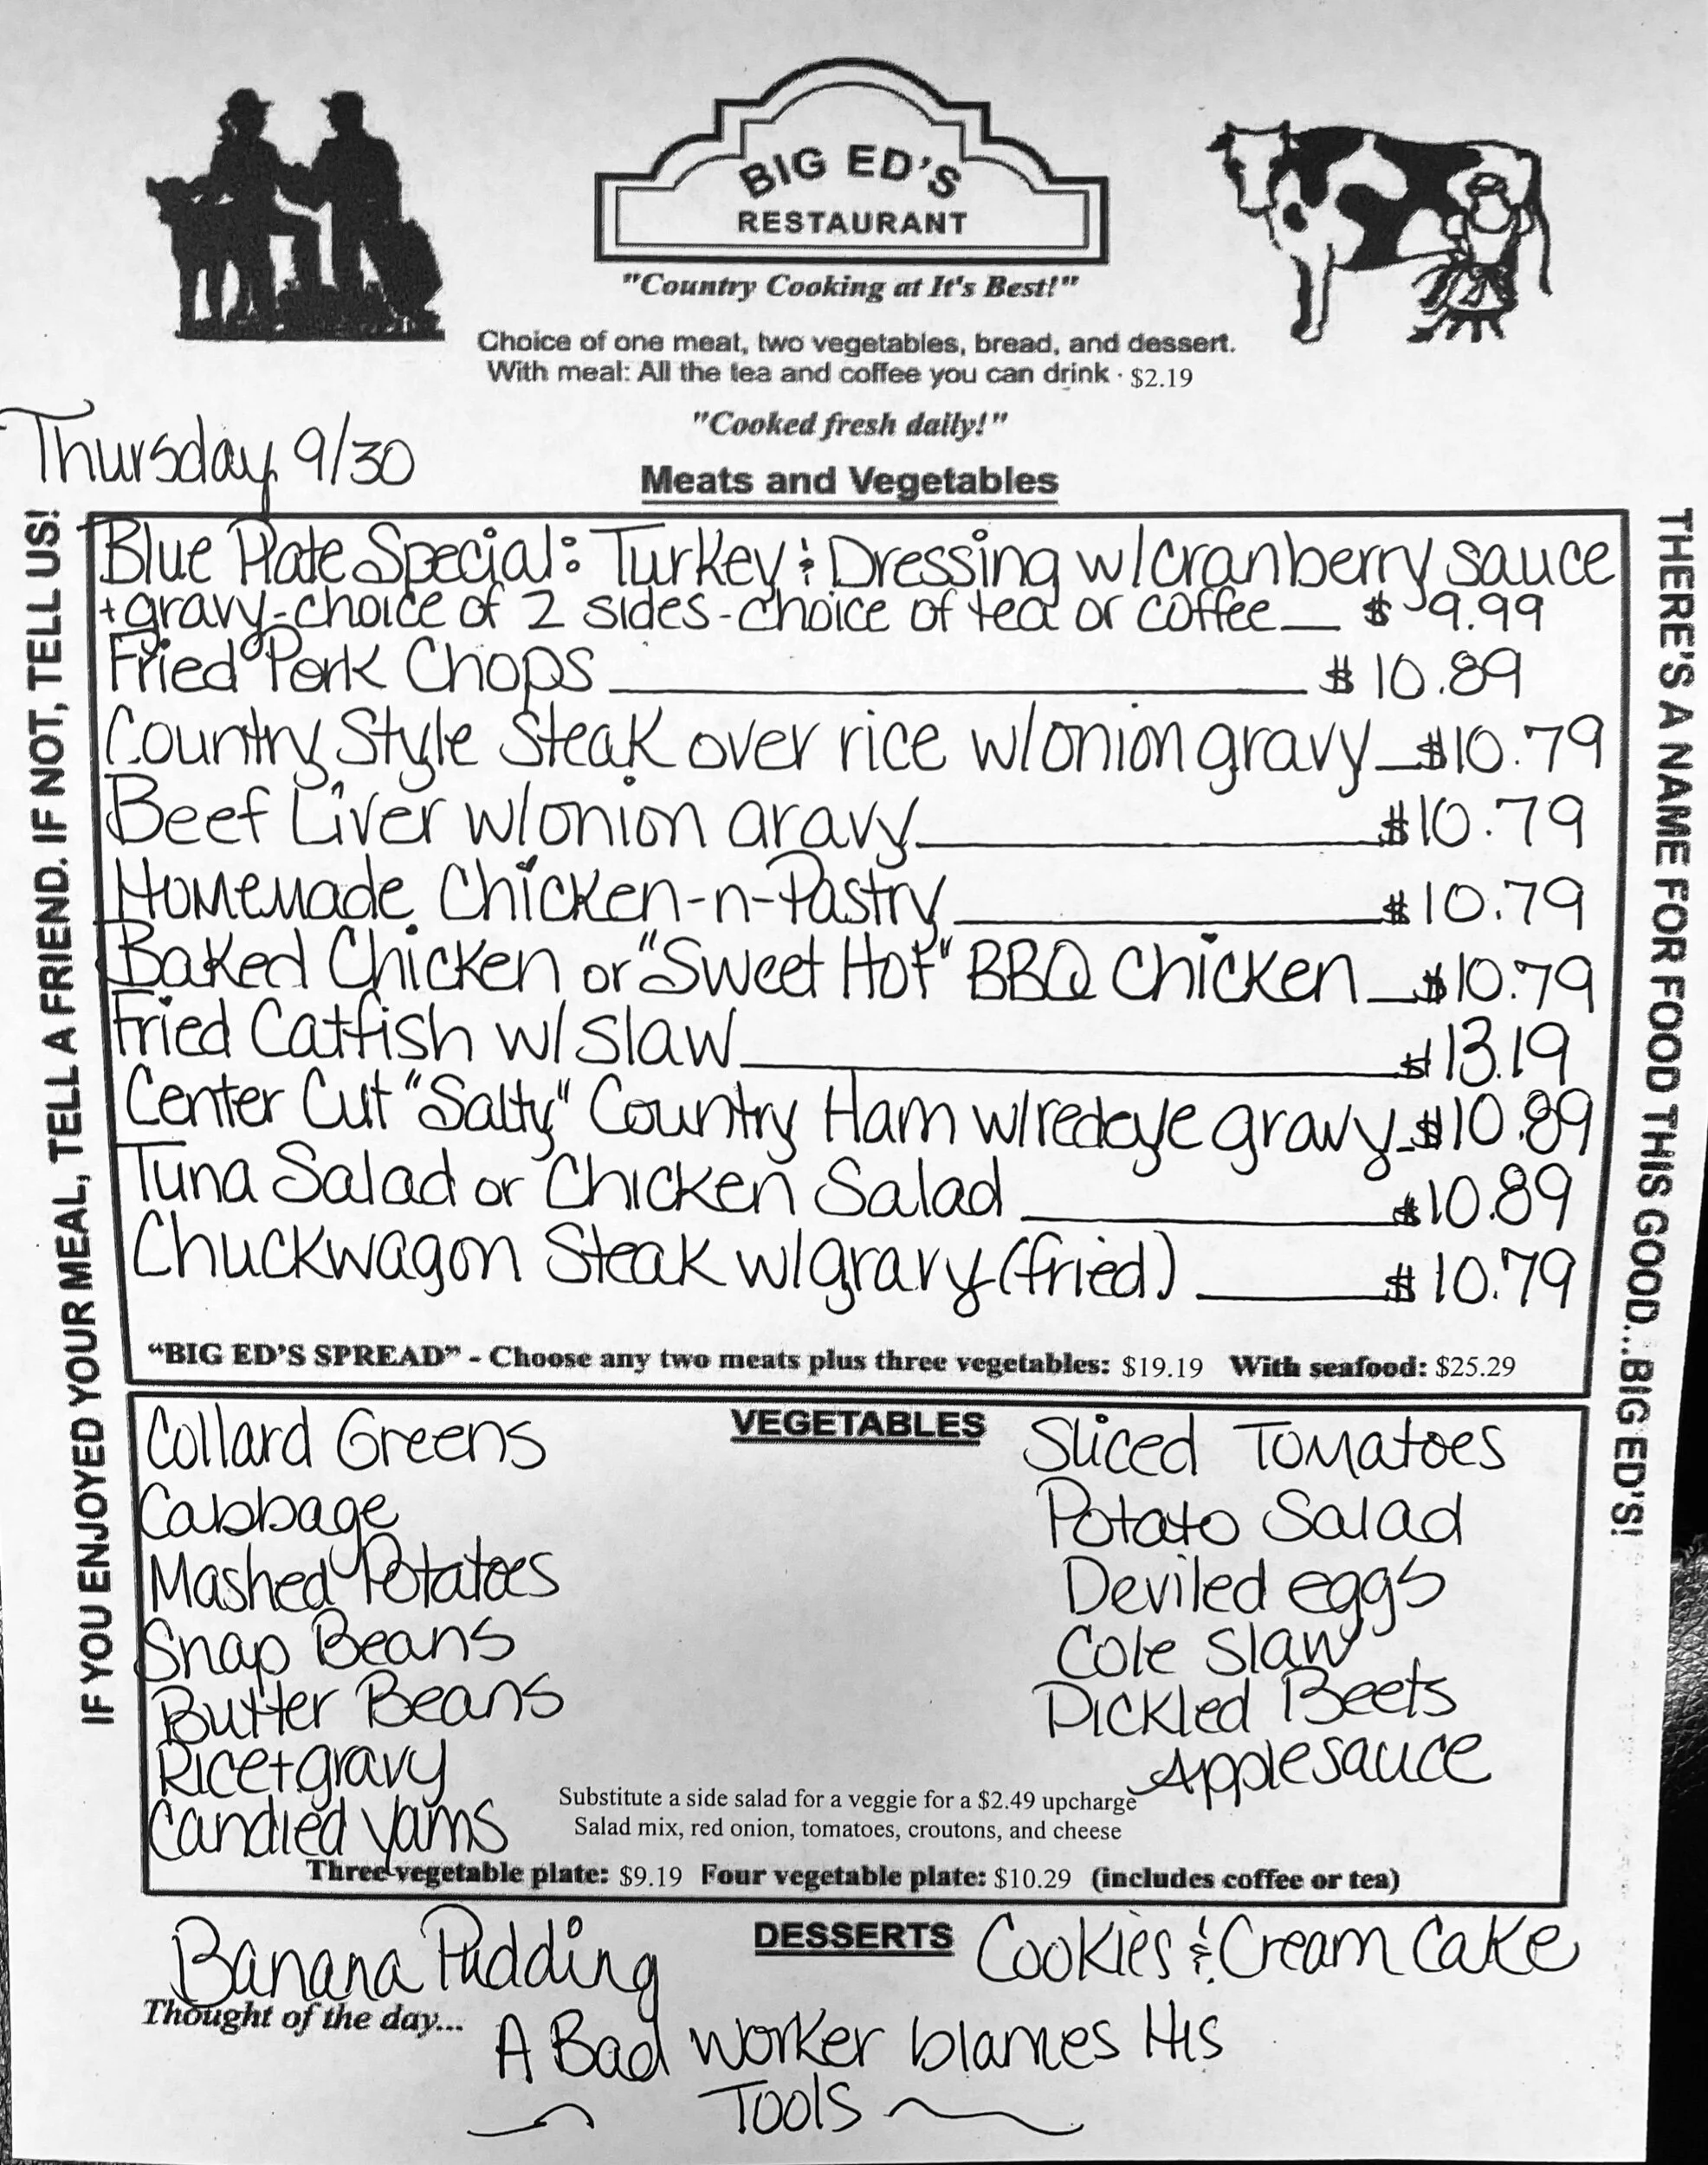 BIG ED'S
RESTAURANT
"Country Cooking at It's Best!"
Choice of one meat, two vegetables, bread, and dessert.
With meal: All the tea and coffee you can drink · $2.19
"Cooked fresh daily!"
Thursday 9/30
Meats and Vegetables
IF YOU ENJOYED YOUR MEAL, TELL A FRIEND. IF NOT, TELL US!
THERE'S A NAME FOR FOOD THIS GOOD...BIG ED'S!
Blue Plate Special: Turkey & Dressing w/cranberry sauce
+gravy-choice of 2 sides-choice of tea or coffee $ 9.99
Fried Pork Chops $ 10.89
Country Style Steak over rice w/onion gravy $10.79
Beef Liver w/onion gravy $10.79
Homemade Chicken-n-Pastry $10.79
Baked Chicken or "Sweet Hot" BBQ Chicken $10.79
Fried Catfish w/slaw $13.19
Center Cut "Salty" Country Ham w/redeye gravy $10.89
Tuna Salad or Chicken Salad $10.89
Chuckwagon Steak w/gravy (fried) $10.79
"BIG ED'S SPREAD" - Choose any two meats plus three vegetables: $19.19 With seafood: $25.29
VEGETABLES
Collard Greens
Cabbage
Mashed Potatoes
Snap Beans
Butter Beans
Rice+gravy
Candied Yams
Sliced Tomatoes
Potato Salad
Deviled eggs
Cole Slaw
Pickled Beets
Applesauce
Substitute a side salad for a veggie for a $2.49 upcharge
Salad mix, red onion, tomatoes, croutons, and cheese
Three vegetable plate: $9.19 Four vegetable plate: $10.29 (includes coffee or tea)
DESSERTS
Banana Pudding
Cookies & Cream Cake
Thought of the day...
A Bad Worker blames His
Tools